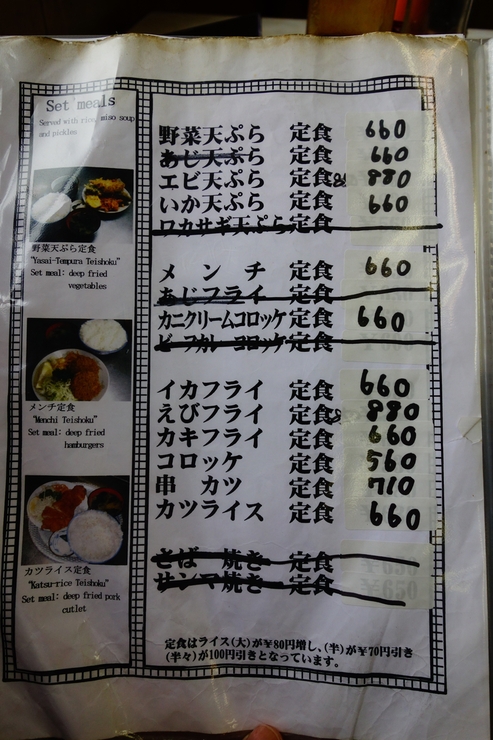 Set meals
Served with rice, miso soup
and pickles
野菜天ぷら定食
"Yasai-Tempura Teishoku"
Set meal: deep fried
vegetables
メンチ定食
"Menchi Teishoku"
Set meal: deep fried
hamburgers
カツライス定食
"Katsu-rice Teishoku"
Set meal: deep fried pork
cutlet
野菜天ぷら 定食 660
あじ天ぷら 定食 660
エビ天ぷら 定食 880
いか天ぷら 定食 660
ワカサギ天ぷら 定食
メンチ 定食 660
あじフライ 定食
カニクリームコロッケ 定食 660
ビーフカレーコロッケ 定食
イカフライ 定食 660
えびフライ 定食 880
カキフライ 定食 660
コロッケ 定食 560
串カツ 定食 710
カツライス 定食 660
さば焼き 定食 ¥650
サンマ焼き 定食 ¥650
定食はライス(大)が¥80円増し、(半)が¥70円引き
(半々)が100円引きとなっています。